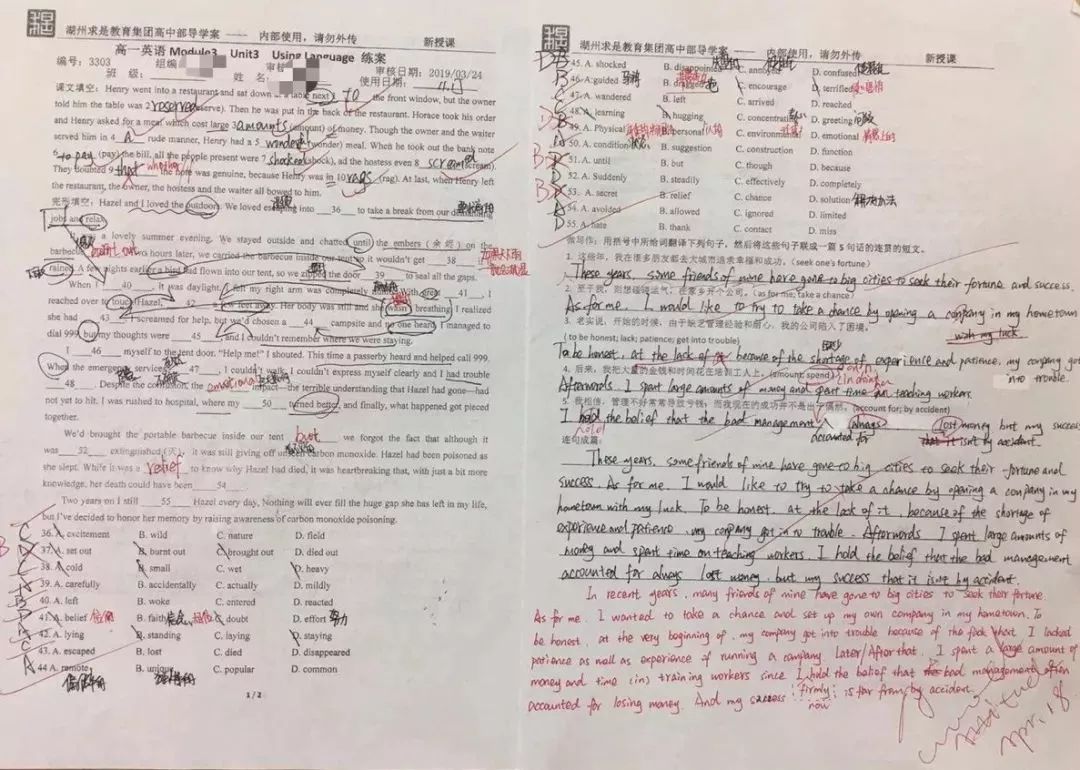 湖州求是教育集团高中部导学案 —— 内部使用，请勿外传
新授课
高一英语 Module3 Unit3 Using Language 练案
编号：3303 组编 审核 审核日期：2019/03/24
班级： 姓名： 使用日期：
课文填空：Henry went into a restaurant and sat down at a table next 1 to the front window, but the owner
told him the table was 2 reserved (reserve). Then he was put in the back of the restaurant. Horace took his order
and Henry asked for a meal which cost large 3 amounts (amount) of money. Though the owner and the waiter
served him in 4 A rude manner, Henry had a 5 (wonder) meal. When he took out the bank note
6 to pay (pay) the bill, all the people present were 7 shocked (shock), ad the hostess even 8 screamed (scream).
They doubted 9 that whether the note was genuine, because Henry was in 10 rags (rag). At last, when Henry left
the restaurant, the owner, the hostess and the waiter all bowed to him.
完形填空：Hazel and I loved the outdoors. We loved escaping into 36 to take a break from our demanding
jobs and relax.
It was a lovely summer evening. We stayed outside and chatted until the embers (余烬) on the
barbecue burnt out two hours later, we carried the barbecue inside our tent so it wouldn't get 38 if it
rained. A few nights earlier a bird had flown into our tent, so we zipped the door 39 to seal all the gaps.
When I 40, it was daylight. I felt my right arm was completely numb. With great 41, I
reached over to touch Hazel, 42 a few feet away. Her body was still and she wasn't breathing. I realized
she had 43. I screamed for help, but we'd chosen a 44 campsite and no one heard. I managed to
dial 999, but my thoughts were 45 and I couldn't remember where we were staying.
I 46 myself to the tent door. "Help me!" I shouted. This time a passerby heard and helped call 999.
When the emergency services 47, I couldn't walk, I couldn't express myself clearly and I had trouble
48. Despite the confusion, the emotional impact—the terrible understanding that Hazel had gone—had
not yet to hit. I was rushed to hospital, where my 50 turned better, and finally, what happened got pieced
together.
We'd brought the portable barbecue inside our tent but we forgot the fact that although it
was 52 extinguished (灭), it was still giving off unseen carbon monoxide. Hazel had been poisoned as
she slept. While it was a relief to know why Hazel had died, it was heartbreaking that, with just a bit more
knowledge, her death could have been 54.
Two years on I still 55 Hazel every day, Nothing will ever fill the huge gap she has left in my life,
but I've decided to honor her memory by raising awareness of carbon monoxide poisoning.
36. A. excitement B. wild C. nature D. field
37. A. set out B. burnt out C. brought out D. died out
38. A. cold B. small C. wet D. heavy
39. A. carefully B. accidentally C. actually D. mildly
40. A. left B. woke C. entered D. reacted
41. A. belief B. faith C. doubt D. effort 努力
42. A. lying B. standing C. laying D. staying
43. A. escaped B. lost C. died D. disappeared
44 A. remote B. unique C. popular D. common
1 / 2
湖州求是教育集团高中部导学案 —— 内部使用，请勿外传
新授课
45. A. shocked B. disappointed C. annoyed D. confused
46. A. guided B. dragged C. encourage D. terrified
47. A. wandered B. left C. arrived D. reached
48. A. learning B. hugging C. concentrating D. greeting
49. A. Physical B. personal C. environmental D. emotional 情感上的
50. A. condition B. suggestion C. construction D. function
51. A. until B. but C. though D. because
52. A. Suddenly B. steadily C. effectively D. completely
53. A. secret B. relief C. chance D. solution 解决办法
54. A. avoided B. allowed C. ignored D. limited
55. A. hate B. thank C. contact D. miss
微写作：用括号中所给词翻译下列句子，然后将这些句子联成一篇 5 句话的连贯的短文。
1. 这些年，我在很多朋友都去大城市追求幸福和成功。(seek one's fortune)
These years, some friends of mine have gone to big cities to seek their fortune and success.
2. 至于我，则想碰碰运气，在家乡开个公司。(as for me; take a chance)
As for me, I would like to try to take a chance by opening a company in my hometown
with my luck.
3. 老实说，开始的时候，由于缺乏管理经验和耐心，我的公司陷入了困境。
(to be honest; lack; patience; get into trouble)
To be honest, at the lack of because of the shortage of experience and patience, my company got
into trouble.
4. 后来，我把大量的金钱和时间花在培训工人上。(amount; spend)
Afterwards, I spent large amounts of money and spent time on teaching workers.
5. 我相信，管理不好常常导致亏钱；而我现在的成功并不是出于偶然。(account for; by accident)
I hold the belief that the bad management accounted for always lost money but my success
that it isn't by accident.
连句成篇：
These years, some friends of mine have gone to big cities to seek their fortune and
success. As for me. I would like to try to take a chance by opening a company in my
hometown with my luck. To be honest, at the lack of it, because of the shortage of
experience and patience, my company got in to trouble. Afterwords I spent large amounts of
money and spent time on teaching workers. I hold the belief that the bad management
accounted for always lost money, but my success that it isn't by accident.
In recent years, many friends of mine have gone to big cities to seek their fortune.
As for me, I wanted to take a chance and set up my own company in my hometown. To
be honest, at the very beginning of, my company got into trouble because of the fack that I lacked
patience as well as experience of running a company. Later/After that, I spent a large amount of
money and time (in) training workers since I hold the belief that bad management often
accounted for losing money. And my success firmly is far from by accident.
now